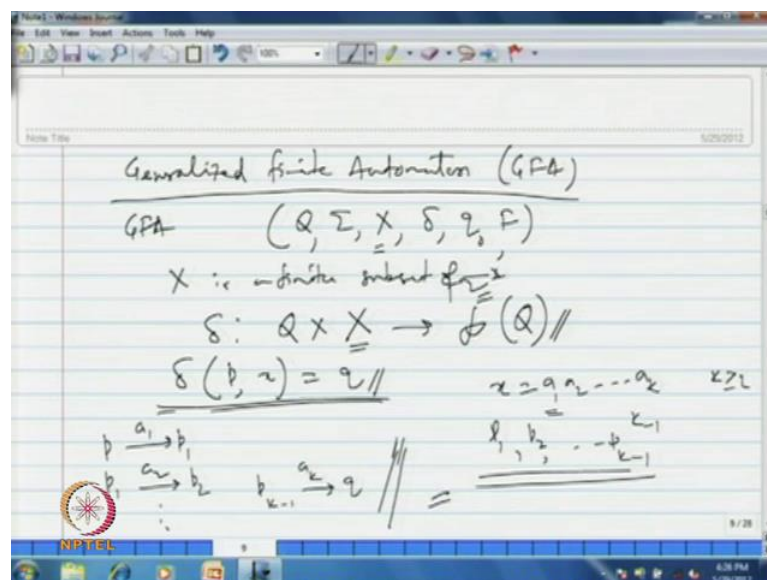 Note1 - Windows Journal
File Edit View Insert Actions Tools Help
100%
Note Title
5/25/2012
Generalized finite Automaton (GFA)
GFA (Q, Σ, X, δ, q₀, F)
X is a finite subset of Σ*
δ: Q × X → ℘(Q)
δ(p, x) = q
x = a₁a₂ --- aₖ k ≥ 2
p —a₁→ p₁
p₁, p₂, . - - pₖ₋₁ k-1
p₁ —a₂→ p₂ pₖ₋₁ —aₖ→ q =
⋮
NPTEL
9/28
9
6:26 PM
5/25/2012